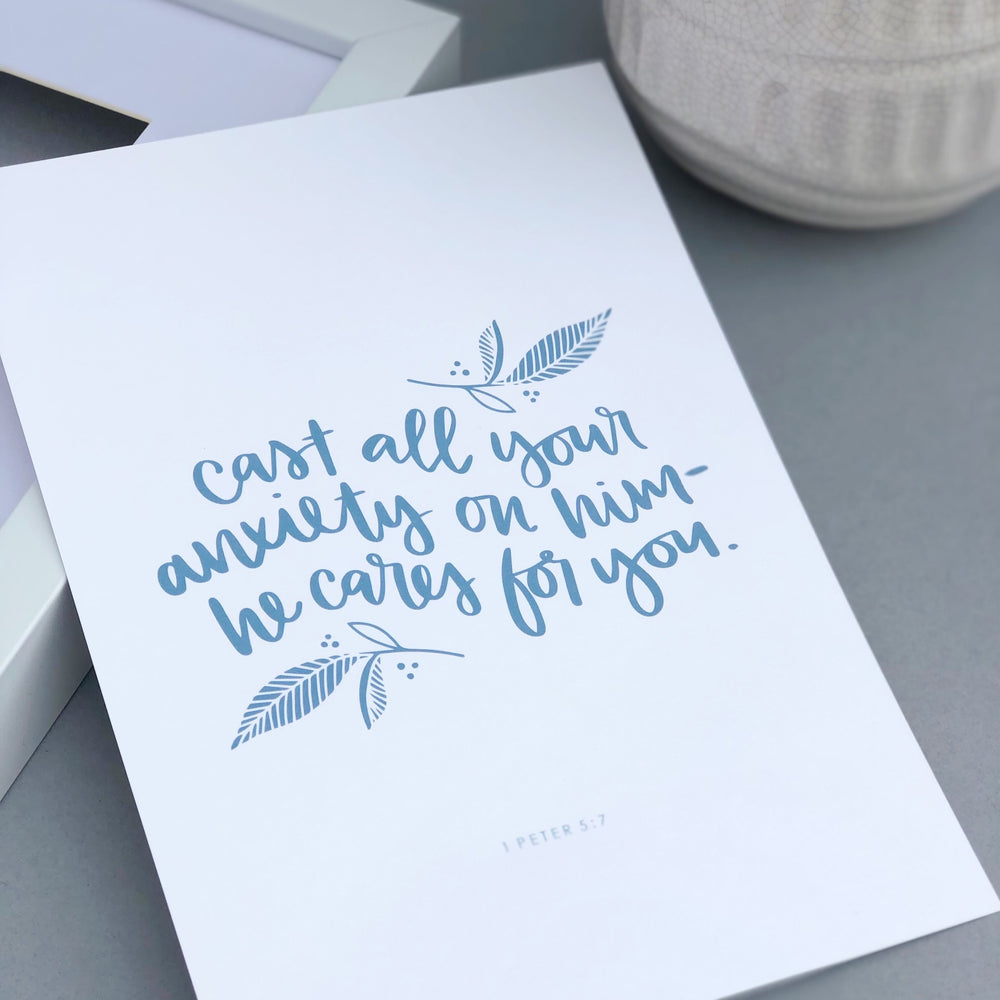 cast all your
anxiety on him-
he cares for you.
1 PETER 5:7